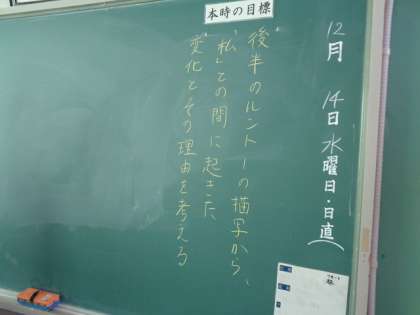 本時の目標
12月 14日 水曜日・日直(
後半のルントーの描写から、
「私」との間に起きた
変化とその理由を考える